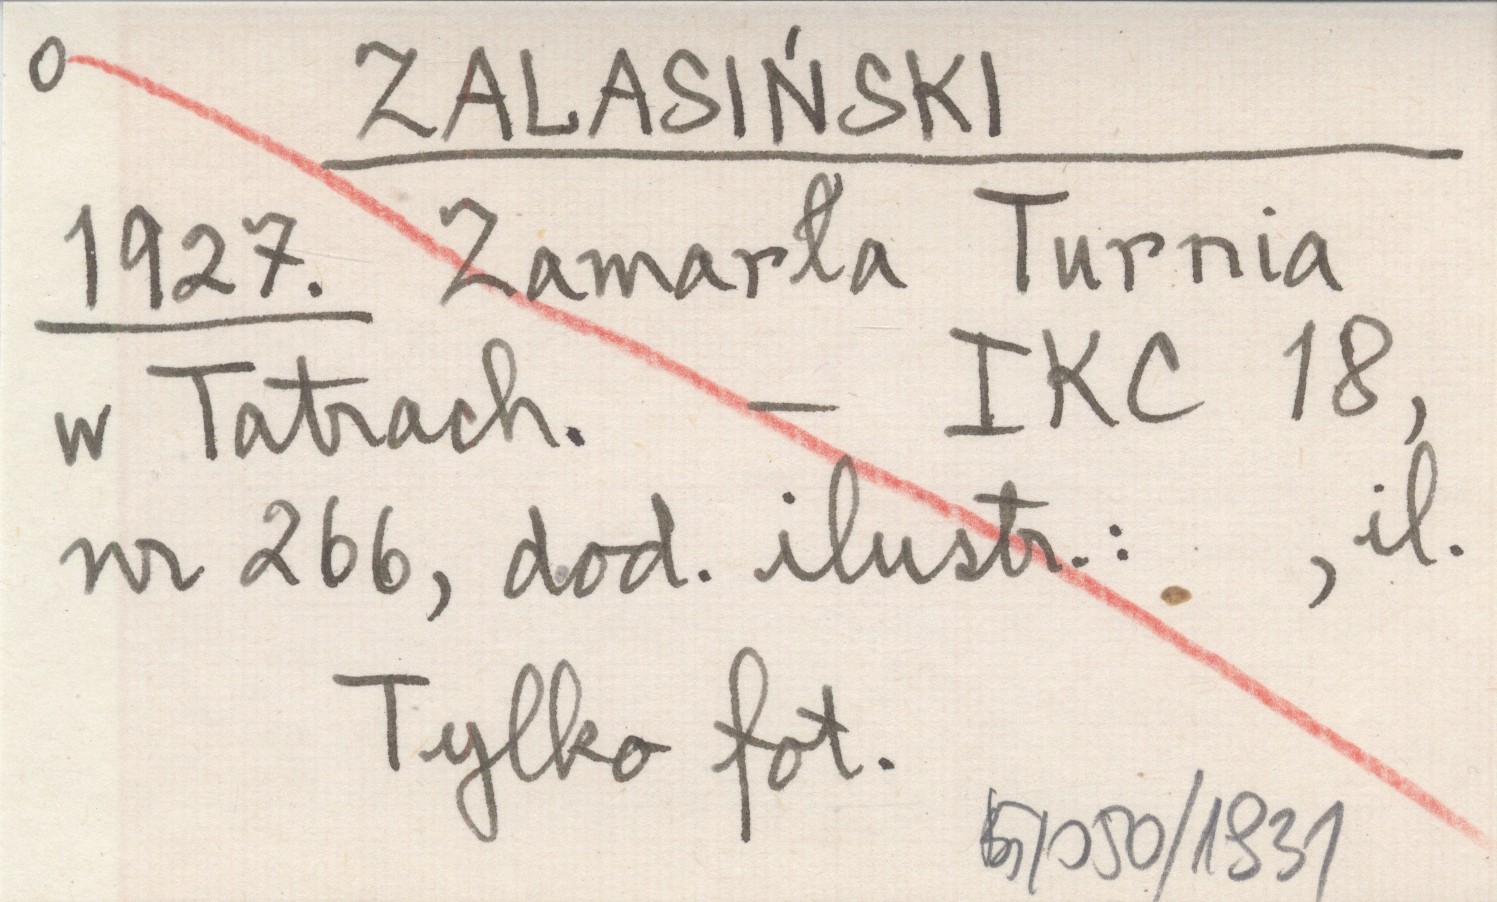 o ZALASIŃSKI
1927. Zamarła Turnia
w Tatrach. — IKC 18,
nr 266, dod. ilustr.: , il.
Tylko fot.